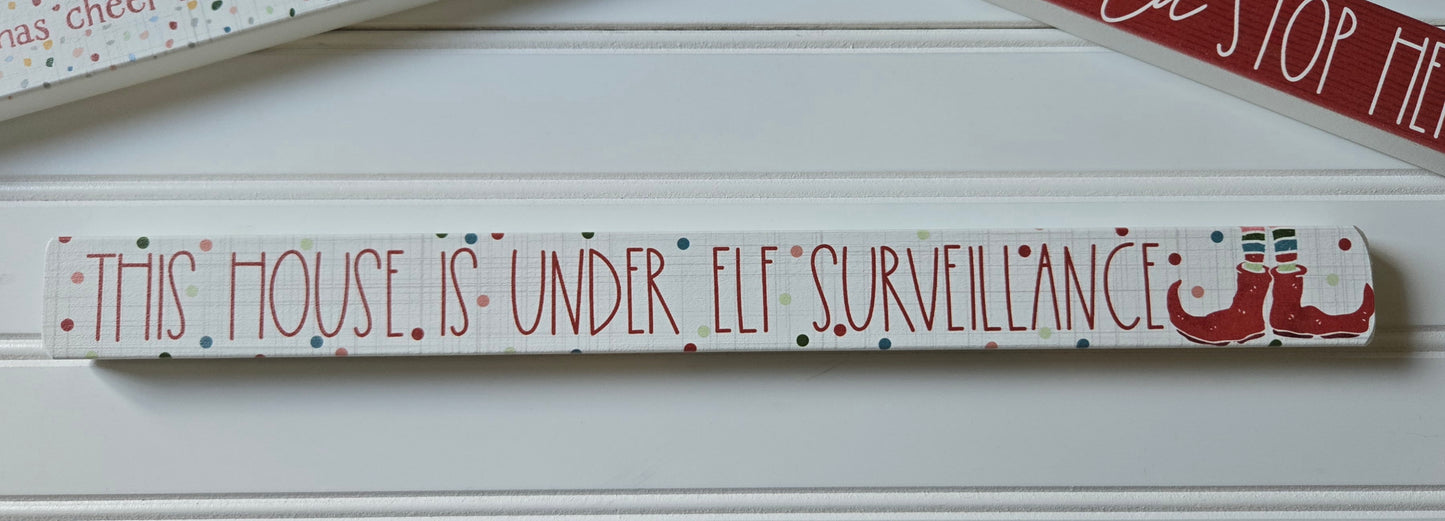 cheer
STOP
THIS HOUSE IS UNDER ELF SURVEILLANCE